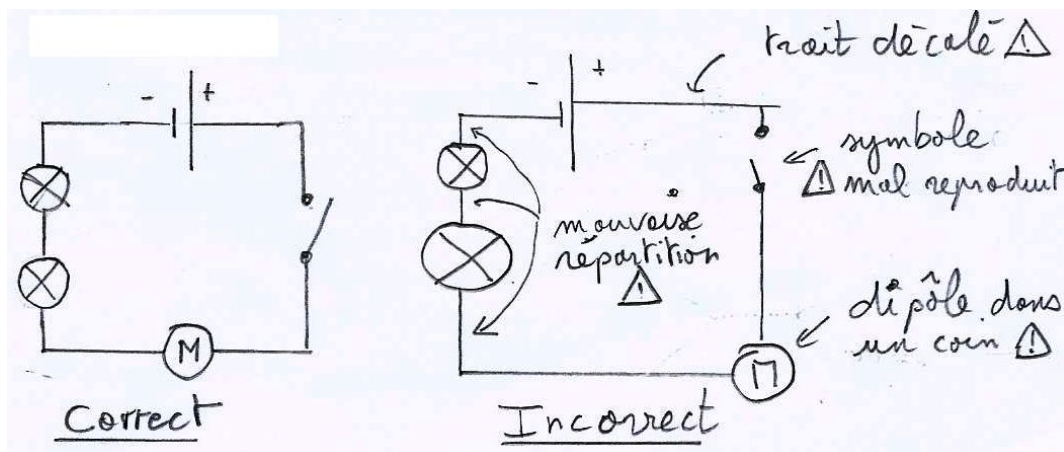 - +
M
Correct
- +
trait décalé ⚠
symbole
⚠ mal reproduit
mauvaise
répartition
⚠
dipôle dans
un coin ⚠
M
Incorrect